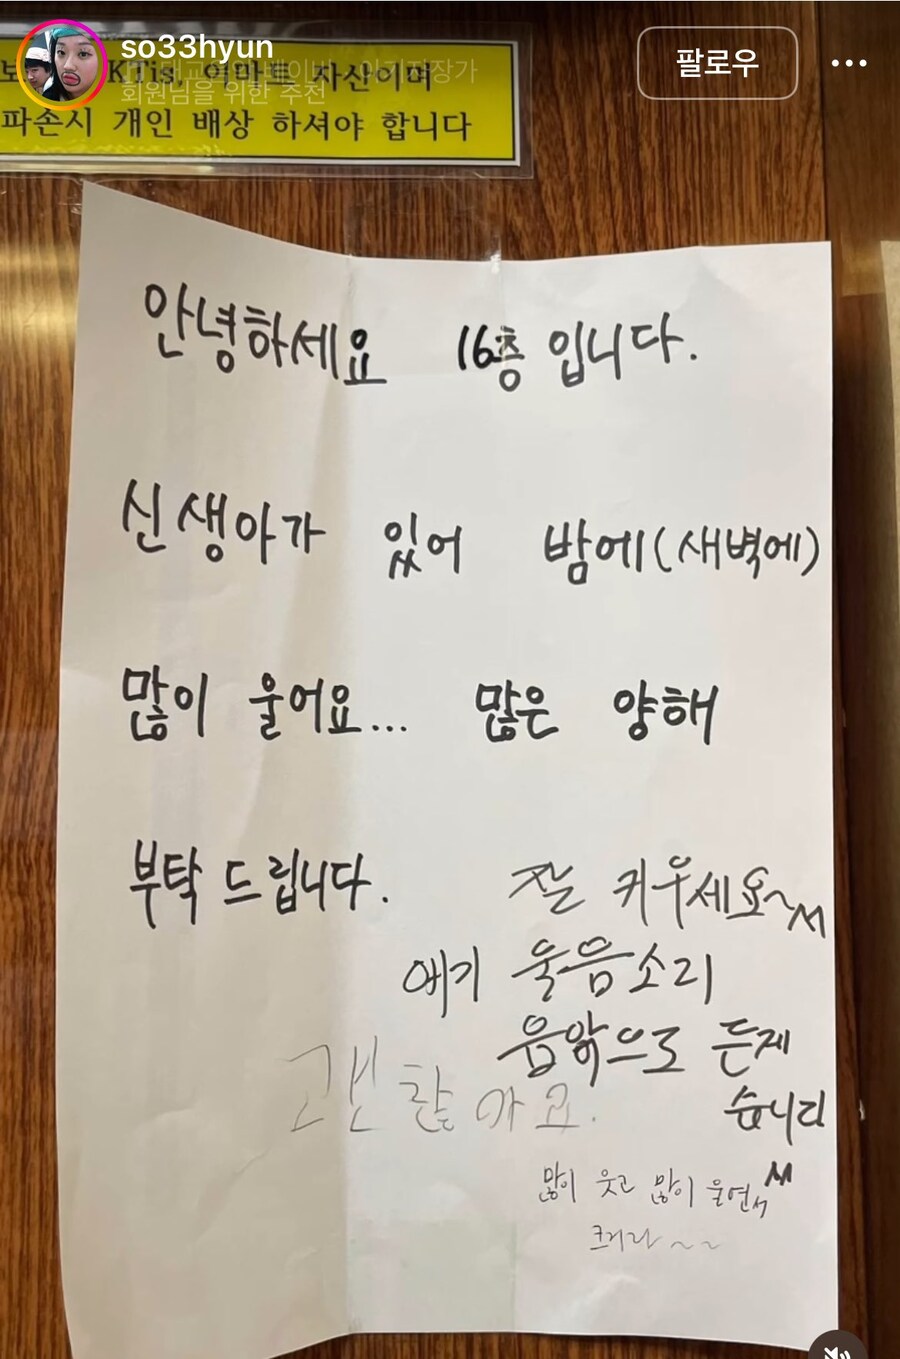 so33hyun
팔로우
회원님을 위한 추천
KTis, 이마트 자산이며
파손시 개인 배상 하셔야 합니다
안녕하세요 16층 입니다.
신생아가 있어 밤에(새벽에)
많이 울어요... 많은 양해
부탁 드립니다.
잘 키우세요~
애기 울음소리
음악으로 듣제
습니다
괜찮아요.
많이 웃고 많이 울면서
크거라~~